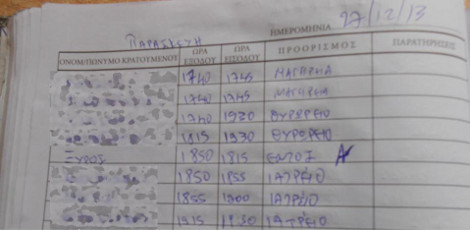 ΠΑΡΑΣΚΕΥΗ ΗΜΕΡΟΜΗΝΙΑ 27/12/13
ΟΝΟΜ/ΠΩΝΥΜΟ ΚΡΑΤΟΥΜΕΝΟΥ ΩΡΑ ΕΞΟΔΟΥ ΩΡΑ ΕΙΣΟΔΟΥ ΠΡΟΟΡΙΣΜΟΣ ΠΑΡΑΤΗΡΗΣΕΙΣ
1740 1745 ΜΑΓΗΡΕΙΑ
1740 1745 ΜΑΓΗΡΕΙΑ
1740 1930 ΘΥΡΩΡΕΙΟ
1815 1930 ΘΥΡΩΡΕΙΟ
ΞΥΡΟΣ 1850 1815
1850 1855 ΙΑΤΡΕΙΟ
1855 1900 ΙΑΤΡΕΙΟ
1915 1930 ΙΑΤΡΕΙΟ